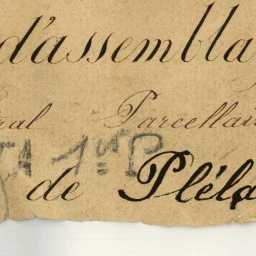 d'assembla
ral Parcellai
1er P
de Pléla